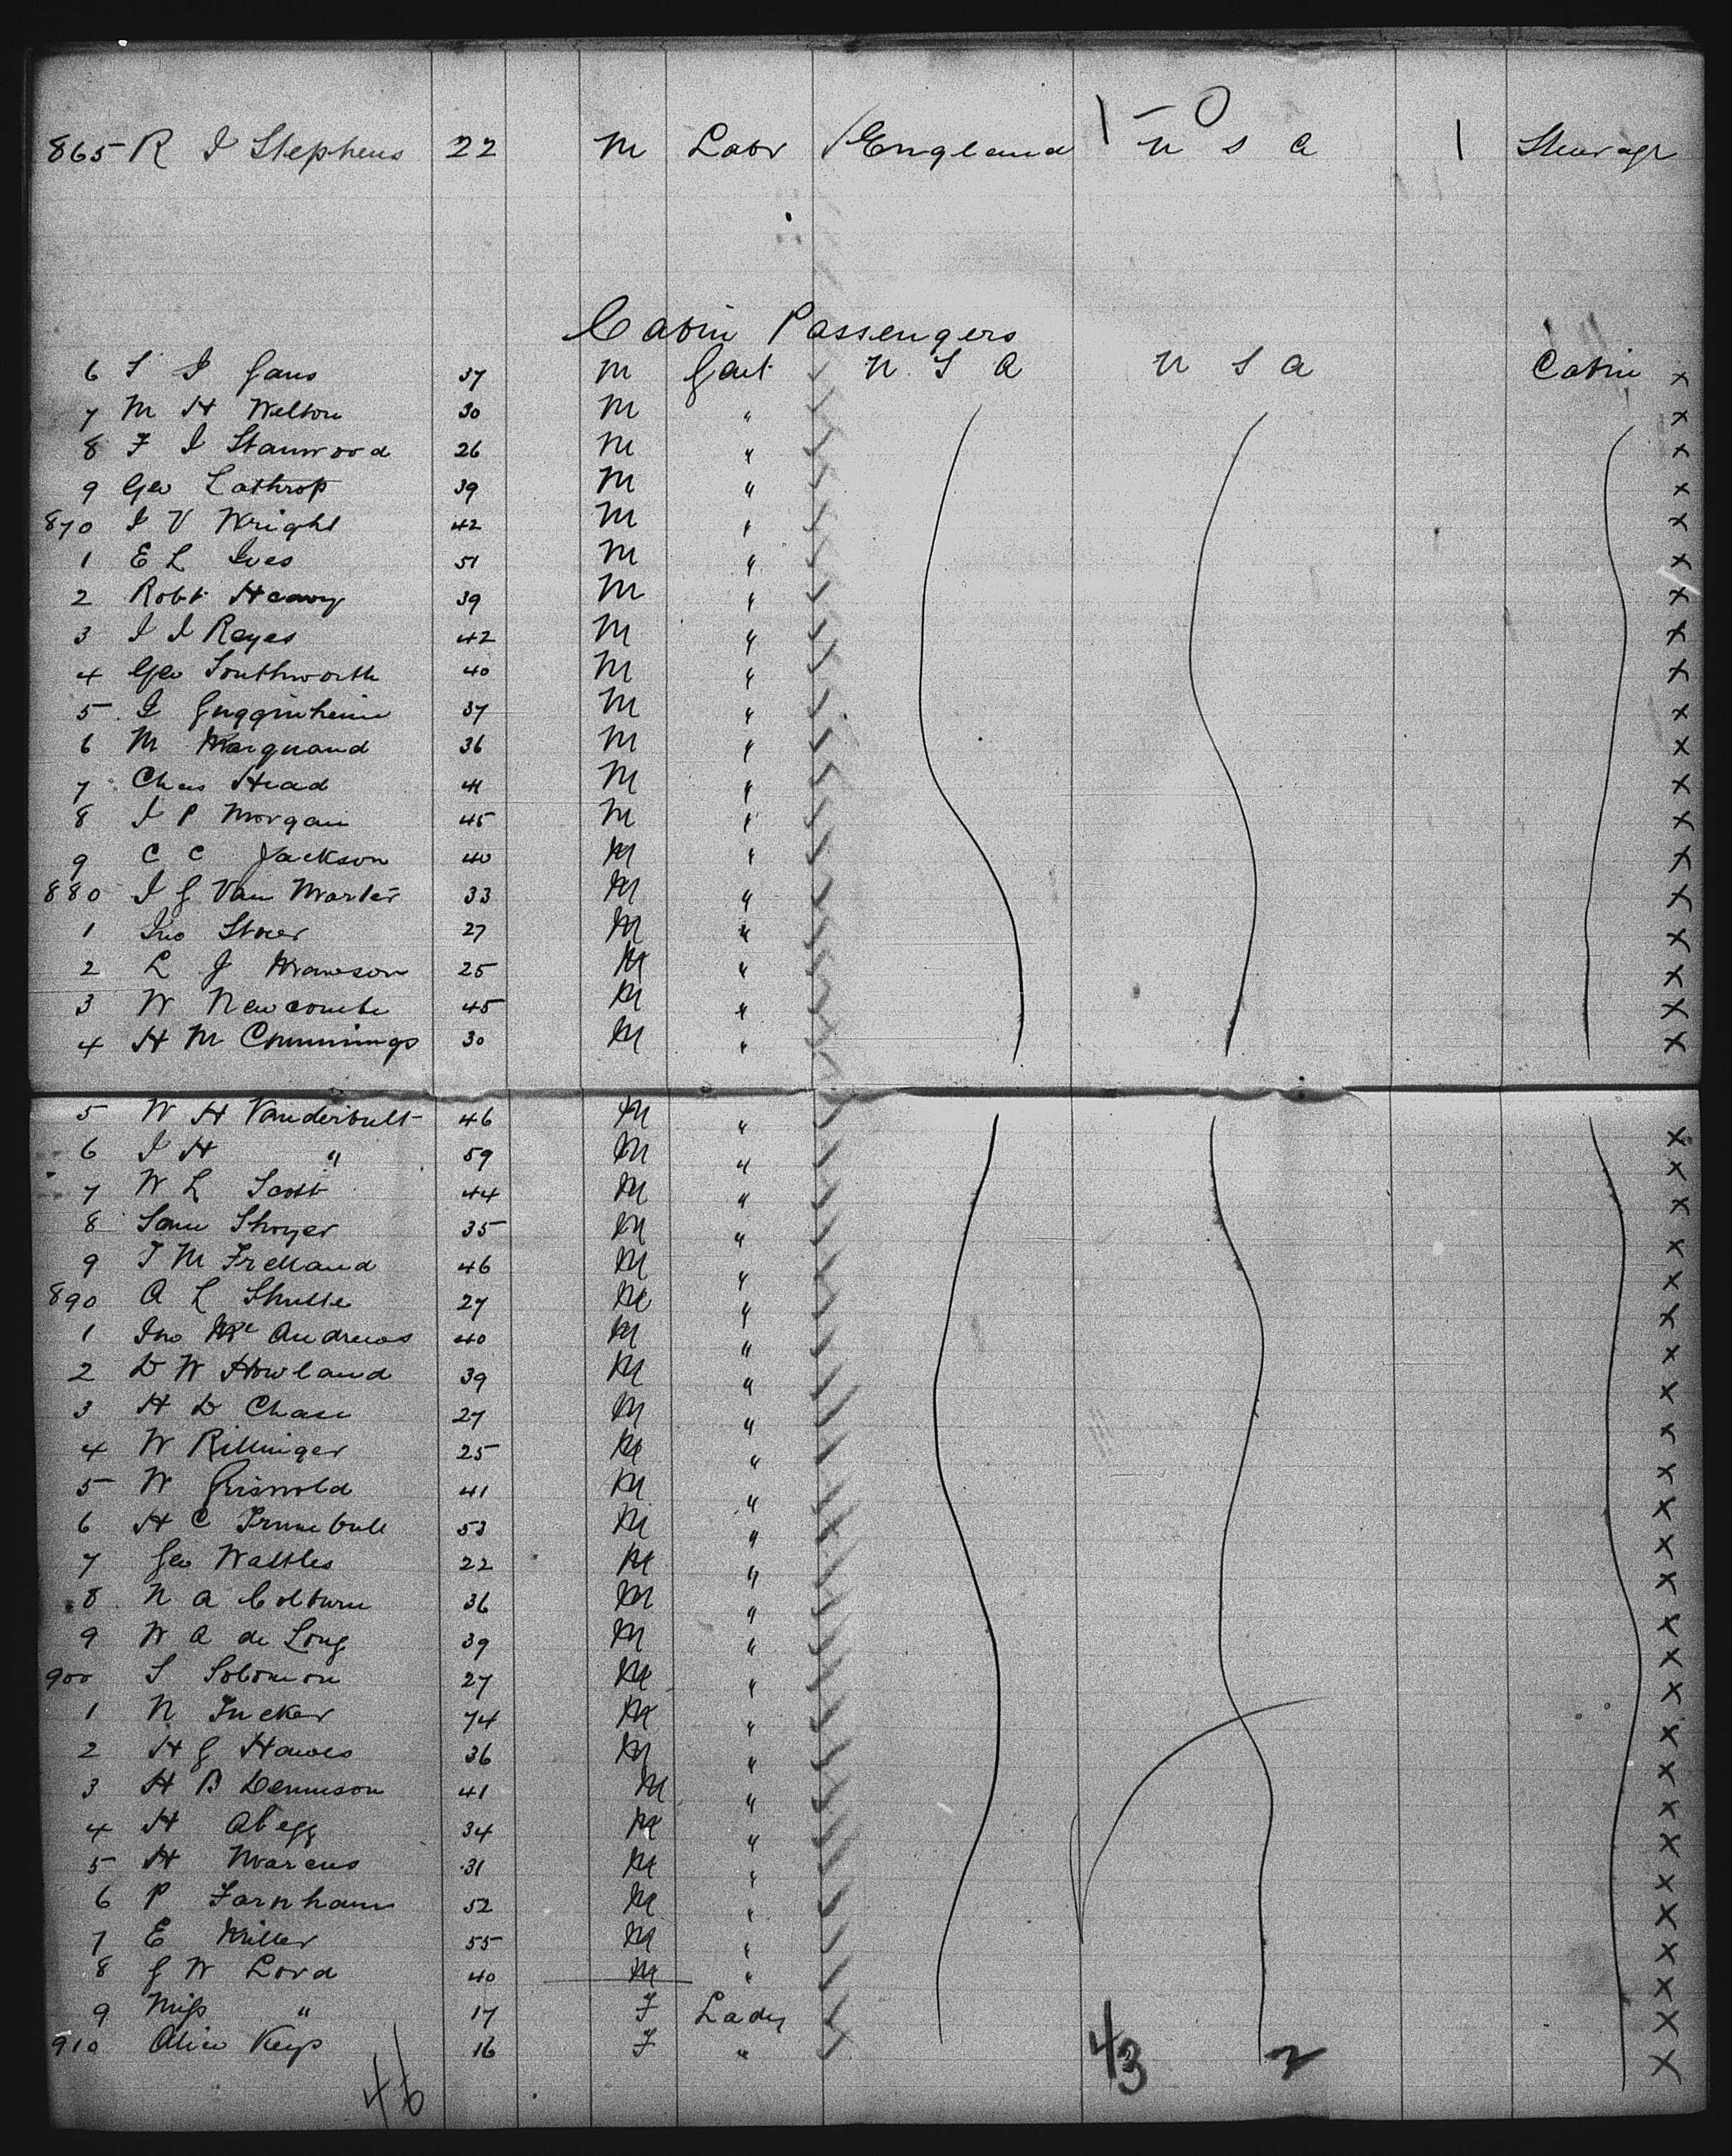 1 - 0
865 R I Stephens 22 M Labr England 1 U S A 1 Steerage
Cabin Passengers
6 S I Gans 37 M Gent U S A U S A Cabin x
7 M H Welton 30 M " x
8 F I Stanwood 26 M " x
9 Geo Lathrop 39 M " x
870 I V Wright 42 M " x
1 E L Ives 51 M " x
2 Robt 39 M " x
3 I I Reyes 42 M " x
4 Geo Southworth 40 M " x
5 I Gugginheim 37 M " x
6 M Marquand 36 M " x
7 Chas Head 41 M " x
8 I P Morgan 45 M " x
9 C C Jackson 40 M " x
880 I G Van Marter 33 M " x
1 Jno 27 M " x
2 L J Mawson 25 M " x
3 W Newcombe 45 M " x
4 H M Cummings 30 M " x
5 W H Vanderbult 46 M " x
6 I H " 59 M " x
7 W L Scott 44 M " x
8 Sam Shoyer 35 M " x
9 T M 46 M " x
890 A L Shulte 27 M " x
1 Jno Mc Andrews 40 M " x
2 D W Howland 39 M " x
3 H D Chase 27 M " x
4 W Rillinger 25 M " x
5 W Griswold 41 M " x
6 H C Trumbull 53 M " x
7 Geo Wattles 22 M " x
8 N A Colburn 36 M " x
9 W A de Long 39 M " x
900 S Solomon 27 M " x
1 N Tucker 74 M " x
2 H G Hawes 36 M " x
3 H B Dennison 41 M " x
4 H Abegg 34 M " x
5 H Marcus 31 M " x
6 P Farnham 52 M " x
7 E Miller 55 M " x
8 G W Lord 40 M " x
9 Miss " 17 F Lady x
910 Alice Keys 16 F " x
46 43 2